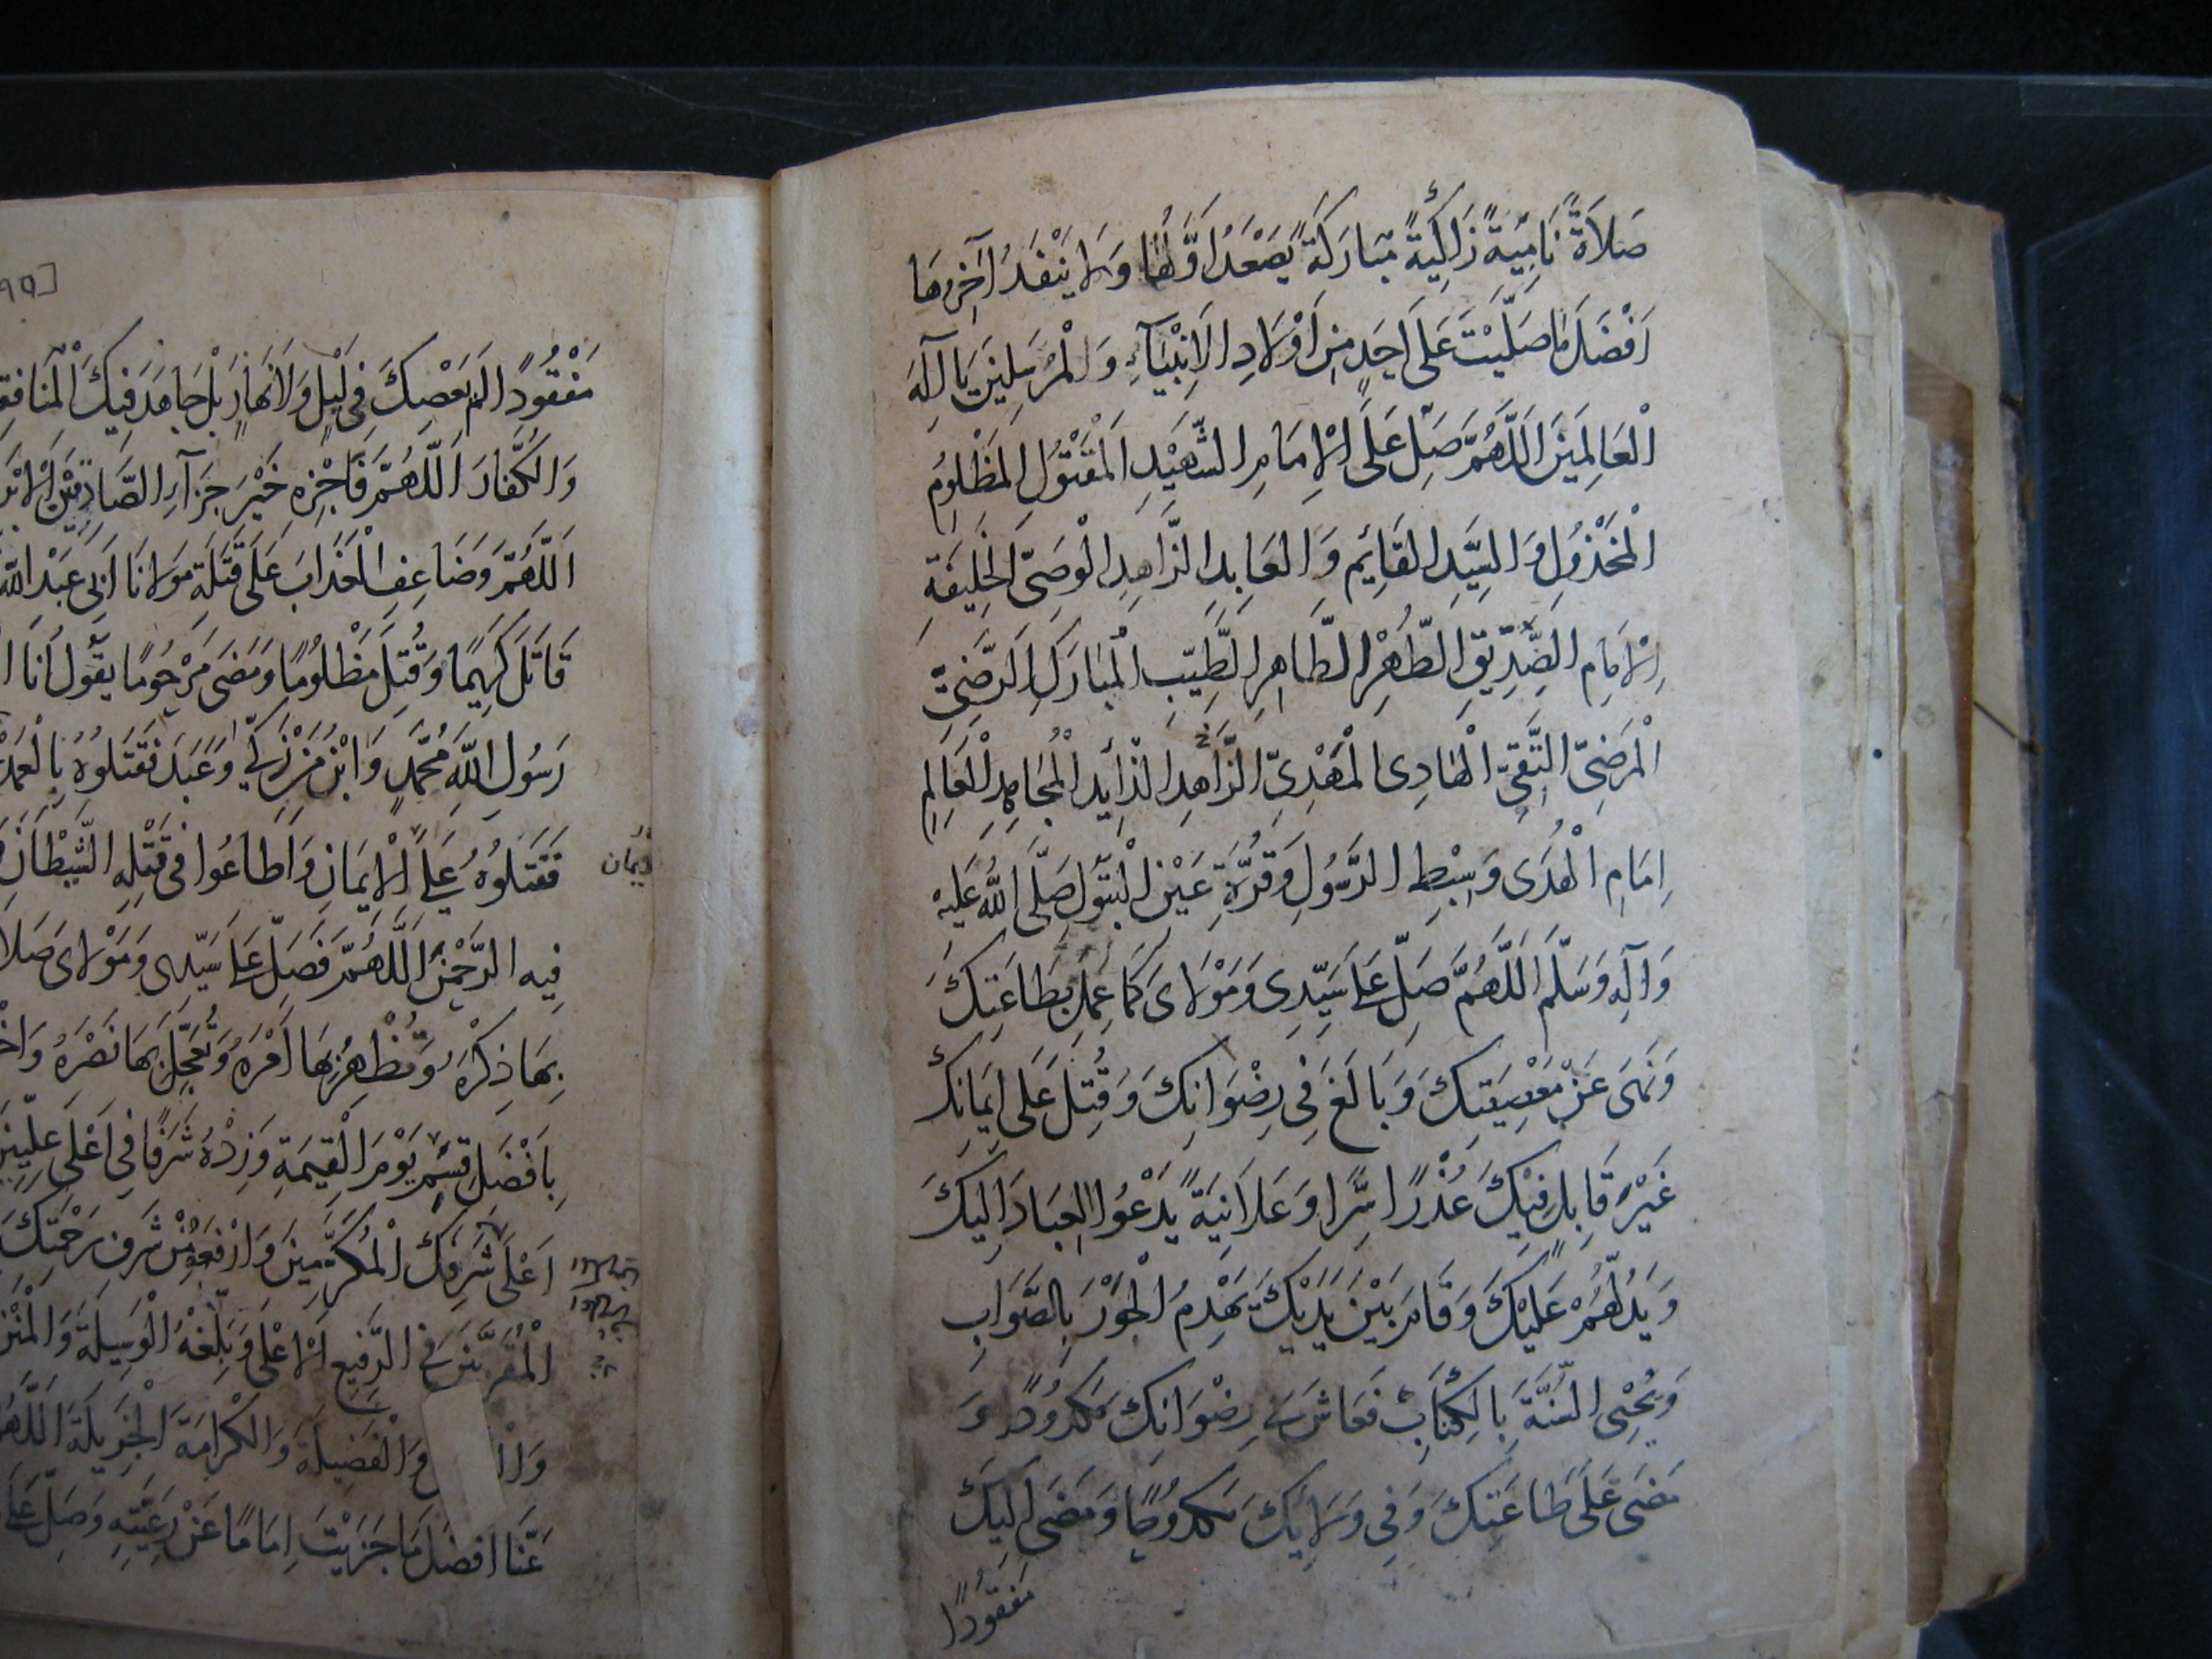 صَلاَةً نَامِيَةً زَاكِيَةً مُبَارَكَةً يَصْعَدُ اَوَّلُهَا وَلَا يَنْفَدُ آخِرُهَا
اَفْضَلَ مَا صَلَّيْتَ عَلَى اَحَدٍ مِنْ اَوْلَادِ الْاَنْبِيَآءِ وَالْمُرْسَلِينَ يَا اِلٰهَ
الْعَالَمِينَ اَللّٰهُمَّ صَلِّ عَلَى الْاِمَامِ الشَّهِيْدِ الْمَقْتُوْلِ الْمَظْلُومِ
الْمَخْذُولِ وَالسَّيِّدِ الْقَائِمِ وَالْعَابِدِ الزَّاهِدِ الْوَصِيِّ الْخَلِيفَةِ
الْاِمَامِ الصِّدِّيقِ الطُّهْرِ الطَّاهِرِ الطَّيِّبِ الْمُبَارَكِ الرَّضِيِّ
الْمَرْضِيِّ التَّقِيِّ الْهَادِى الْمَهْدِىِّ الزَّاهِدِ الذَّائِدِ الْمُجَاهِدِ الْعَالِمِ
اِمَامِ الْهُدَى وَسِبْطِ الرَّسُولِ وَقُرَّةِ عَيْنِ الْبَتُولِ صَلَّى اللّٰهُ عَلَيْهِ
وَآلِهِ وَسَلَّمَ اَللّٰهُمَّ صَلِّ عَلَى سَيِّدِى وَمَوْلَاىَ كَمَا عَمِلَ بِطَاعَتِكَ
وَنَهَى عَنْ مَعْصِيَتِكَ وَبَالَغَ فِى رِضْوَانِكَ وَقُتِلَ عَلَى اِيمَانِكَ
غَيْرَ قَابِلٍ فِيْكَ عُذْرًا سِرًّا وَعَلَانِيَةً يَدْعُوا الْعِبَادَ اِلَيْكَ
وَيَدُلُّهُمْ عَلَيْكَ وَقَامَ بَيْنَ يَدَيْكَ يَهْدِمُ الْجَوْرَ بِالصَّوَابِ
وَيُحْيِى السُّنَّةَ بِالْكِتَابِ فَعَاشَ فِى رِضْوَانِكَ مَكْدُودًا وَ
مَضَى عَلَى طَاعَتِكَ وَفِى وَلَايَتِكَ مَكْدُوحًا وَمَضَى اِلَيْكَ
مَفْقُودًا
مَفْقُودًا لَمْ يَعْصِكَ فِى لَيْلٍ وَلَا نَهَارٍ بَلْ جَاهَدَ فِيكَ الْمُنَافِقِ
وَالْكُفَّارَ اَللّٰهُمَّ فَاجْزِهِ خَيْرَ جَزَآءِ الصَّادِقِيْنَ الْاَبْرَ
اَللّٰهُمَّ وَضَاعِفِ الْعَذَابَ عَلَى قَتَلَةِ مَوْلَانَا اَبِى عَبْدِ اللّٰهِ
قَاتَلَ كَرِيمًا وَقُتِلَ مَظْلُومًا وَمَضَى مَرْحُومًا يَقُولُ اَنَا ا
رَسُولِ اللّٰهِ مُحَمَّدٍ وَابْنُ مَنْ زَكّٰى وَعَبَدَ فَقَتَلُوهُ بِالْعَمْدِ
فَقَتَلُوهُ عَلَى الْاِيمَانِ وَاَطَاعُوا فِى قَتْلِهِ الشَّيْطَانَ
فِيهِ الرَّحْمٰنَ اَللّٰهُمَّ فَصَلِّ عَلَى سَيِّدِى وَمَوْلَاىَ صَلَا
بِهَا ذِكْرَهُ وَتُظْهِرُ بِهَا اَمْرَهُ وَتُعَجِّلُ بِهَا نَصْرَهُ وَاخْ
بِاَفْضَلِ قِسْمٍ يَوْمَ الْقِيٰمَةِ وَزِدْهُ شَرَفًا فِى اَعْلَى عِلِّيِّينَ
اَعْلَى شَرَفِ الْمُكَرَّمِينَ وَارْفَعْهُ مِنْ شَرَفِ رَحْمَتِكَ
الْمُقَرَّبِينَ فِى الرَّفِيعِ الْاَعْلَى وَبَلِّغْهُ الْوَسِيلَةَ وَالْمَنْزِ
وَالْفَضِيلَةَ وَالْكَرَامَةَ الْجَزِيلَةَ اَللّٰهُمَّ
عَنَّا اَفْضَلَ مَا جَزَيْتَ اِمَامًا عَنْ رَعِيَّتِهِ وَصَلِّ عَلَى